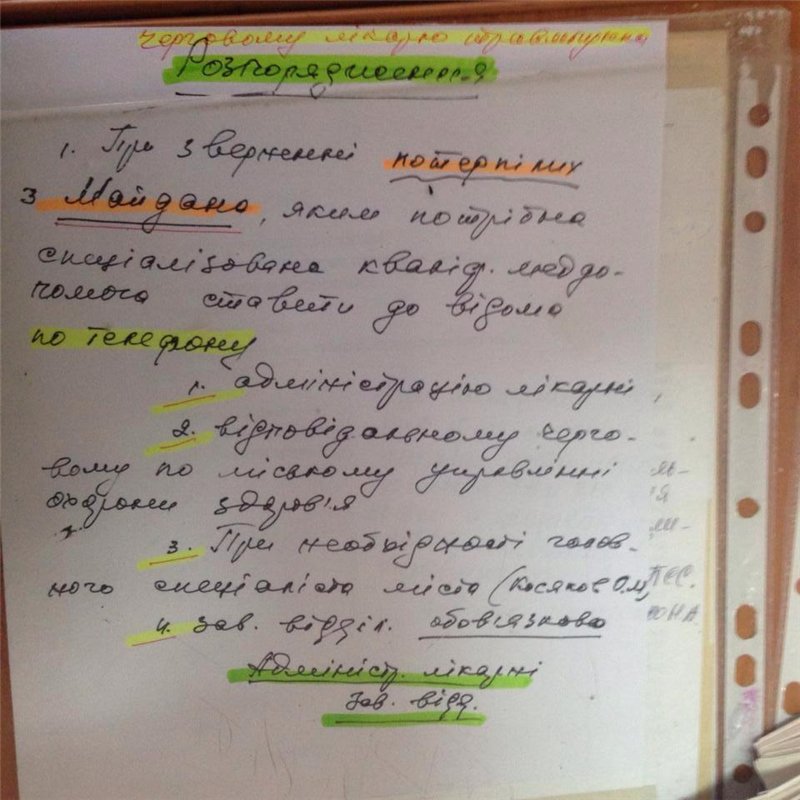 Черговому лікарю травмпункта
Розпорядження
1. При зверненні потерпілих
з Майдано, яким потрібна
спеціалізована кваліф. меддо-
помога ставити до відома
по телефону
1. адміністрацію лікарні,
2. відповідальному черго-
вому по міському управлінні
охорони здоров'я
3. При необхідності голов-
ного спеціаліста міста (Косяков О.М)
4. зав. відділ. обов'язково
Адміністр. лікарні
Зав. відд.